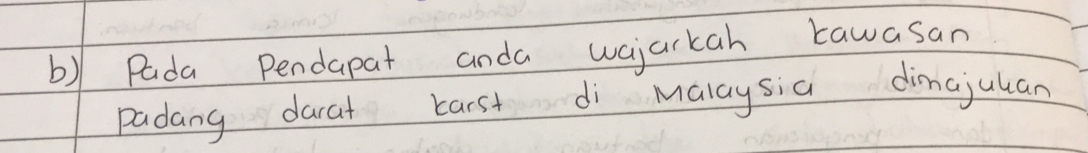 b) Pada Pendapat anda wajarkah kawasan
padang darat karst di Malaysia dimajukan